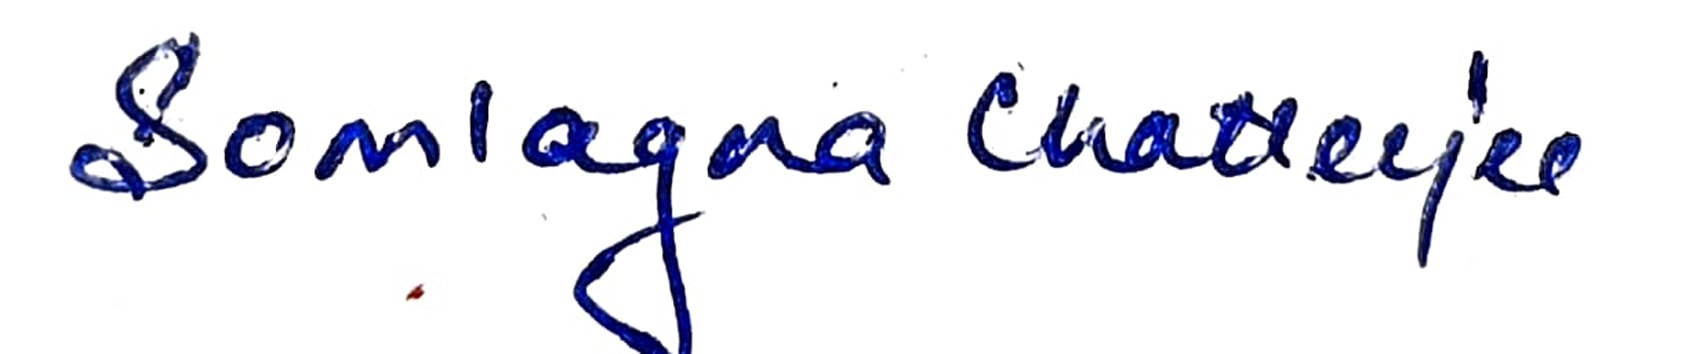 Somlagna Chatterjee